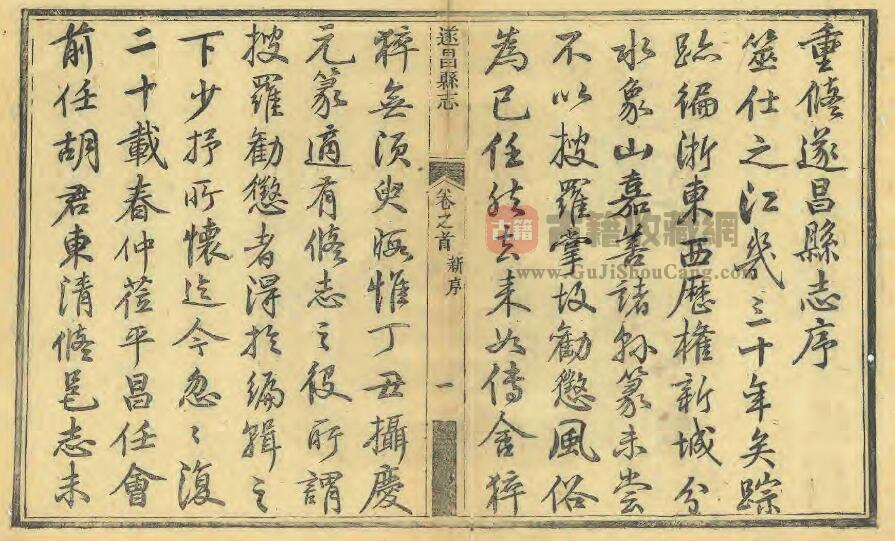 重脩遂昌縣志序
筮仕之江幾三十年矣踪
跡徧浙東西歷權新城分
水象山嘉善諸縣篆未嘗
不以搜羅掌故勸懲風俗
為己任然去来如傳舍猝
遂昌縣志
卷之首
新序
一
猝無須臾暇惟丁丑攝慶
元篆適有脩志之役所謂
搜羅勸懲者得於編輯之
下少抒所懷迄今忽〻復
二十載春仲莅平昌任會
前任胡君東清脩邑志未
古籍
古籍收藏網
www.GuJiShouCang.com